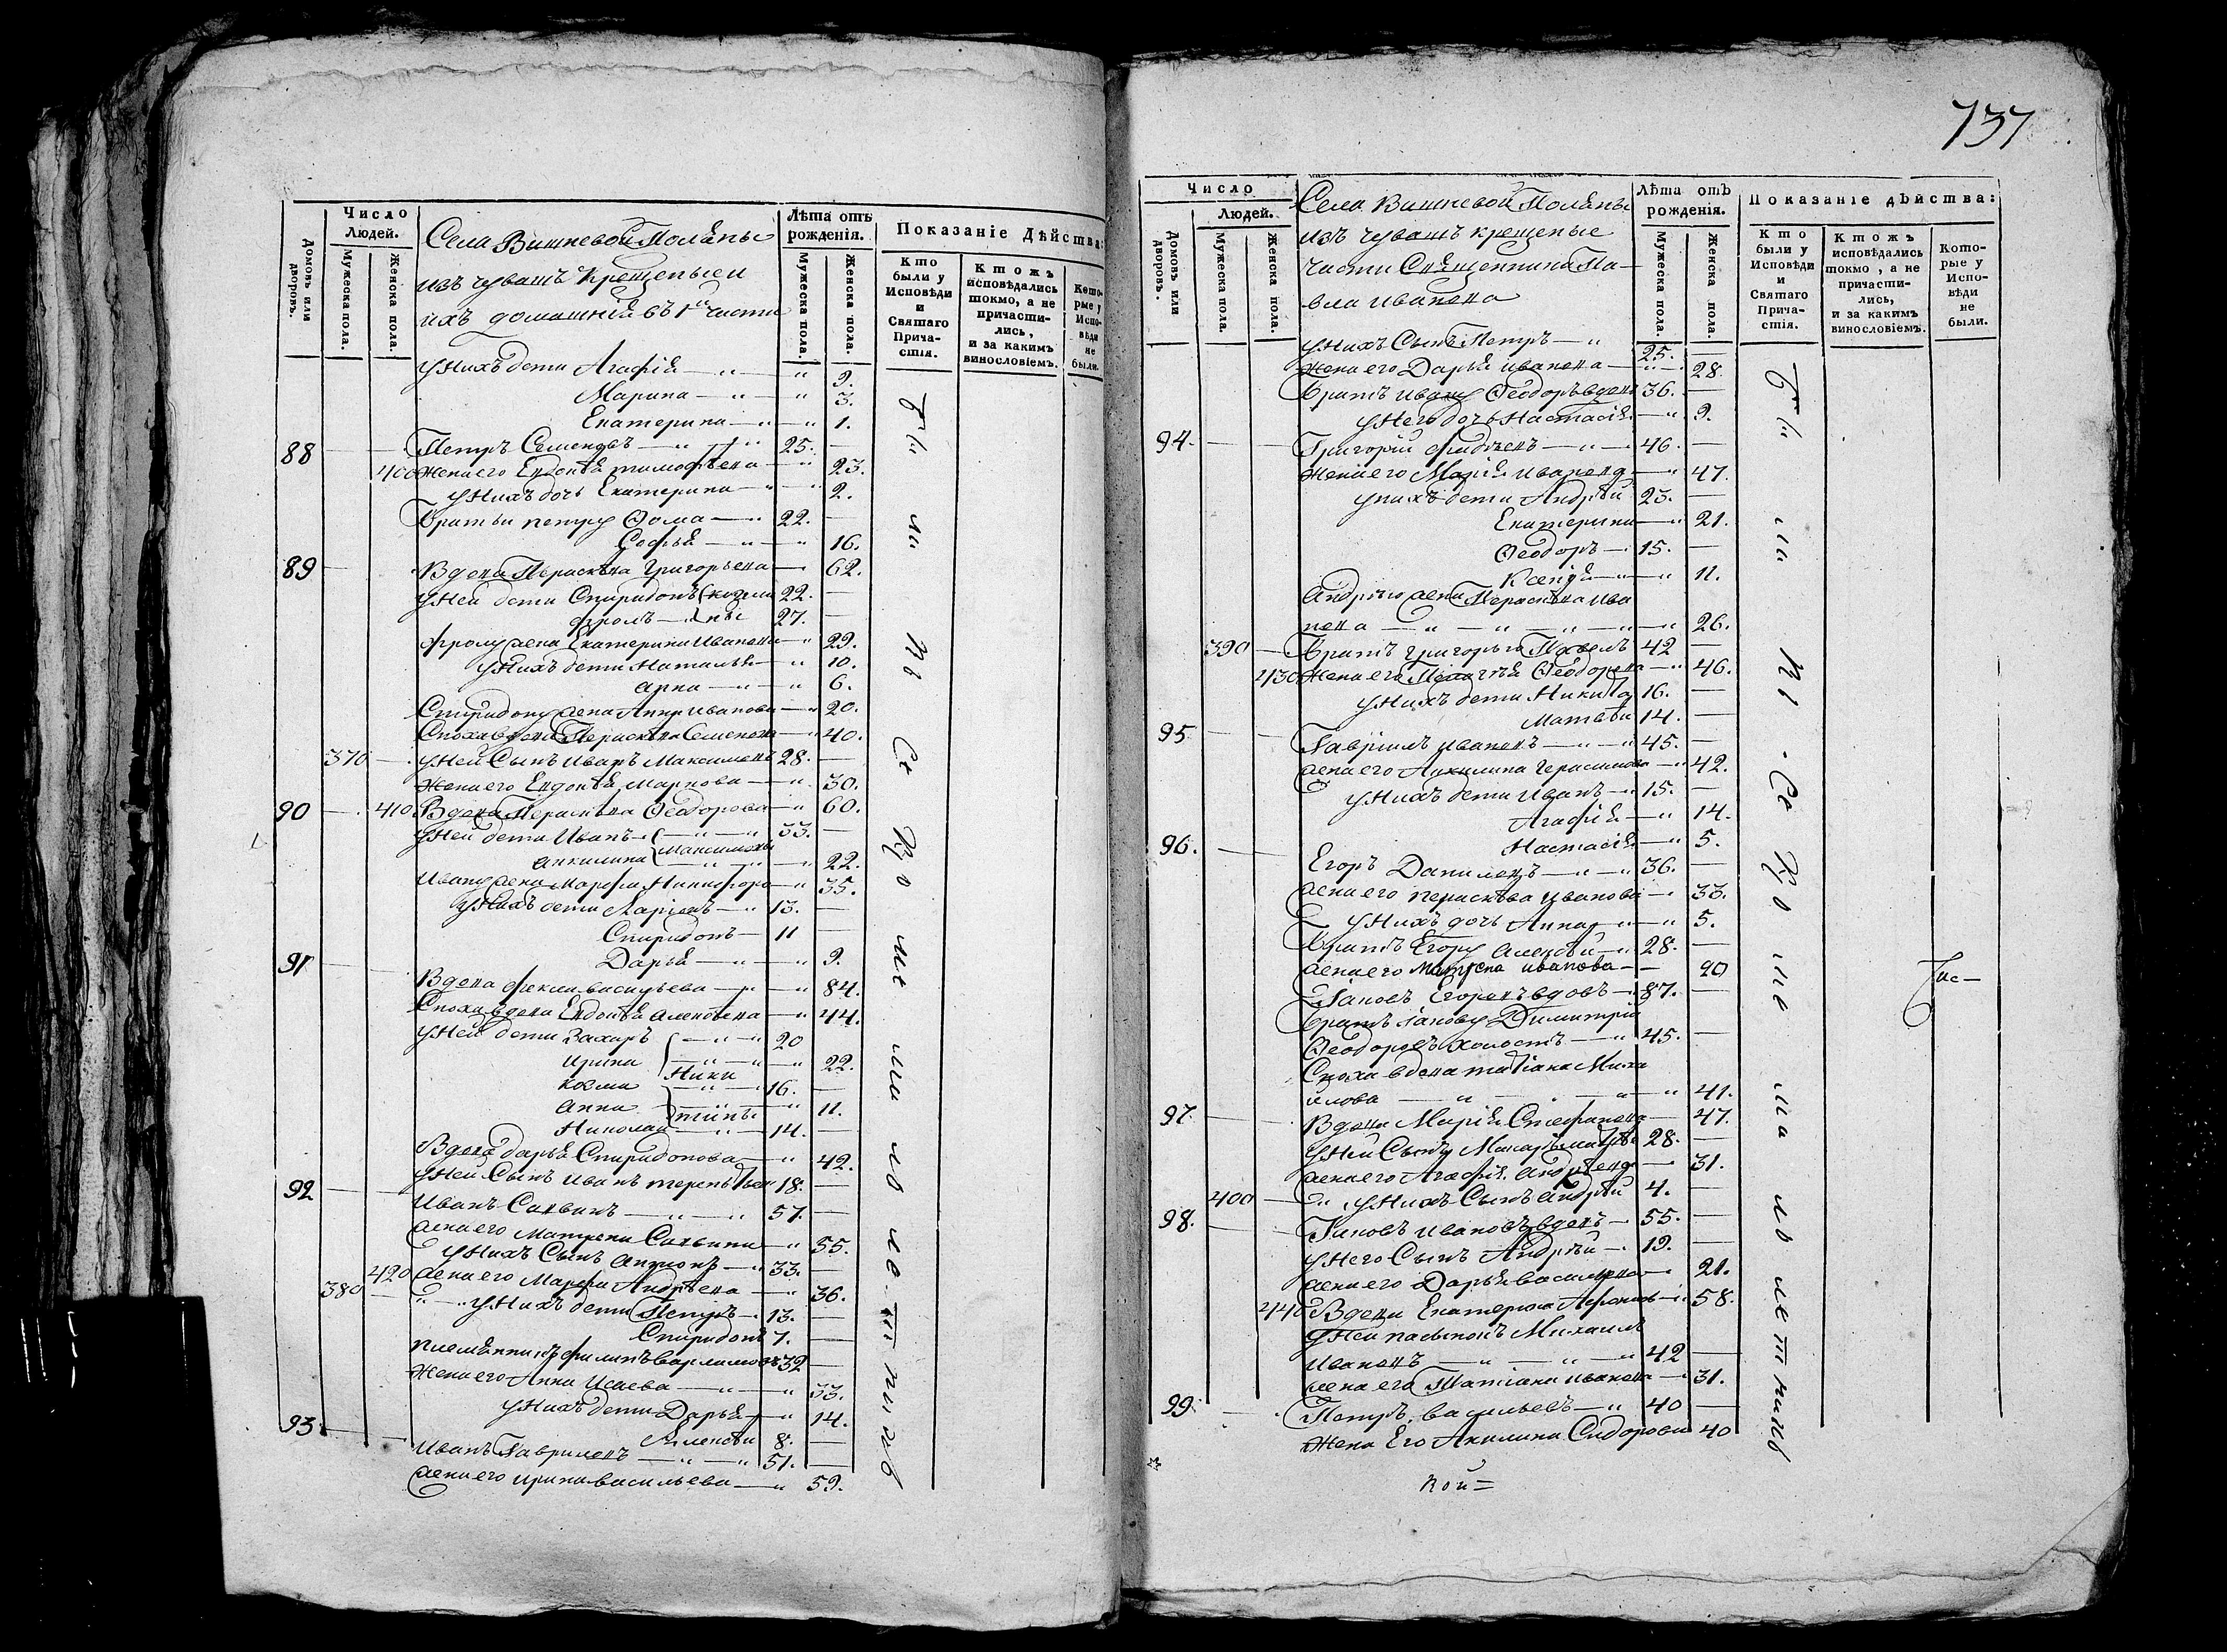 Число
Людей.
Домовъ или дворовъ.
Мужеска пола.
Женска пола.
Села Вишневой Поляны
изъ чувашъ Крещеныеи
ихъ домашнія въ 1й части
Лѣта отъ рожденія.
Мужеска пола.
Женска пола.
Показаніе Дѣйства:
Кто были у Исповѣди и Святаго Причастія.
Ктожъ исповѣдались токмо, а не причастились, и за какимъ винословіемъ.
Которые у Исповѣди не были.
у Нихъ дети Агафія — " — " 9.
Марина — " — " 3.
Екатерина — " — " 1.
88 — Петръ Семеновъ — " — " 25. —
400 Жена его Евдокія тимофѣева — " 23.
у Нихъ дочь Екатерина — " — " 2.
Братьи петру Ѳома — " 22. —
Софья — " — " 16.
89 Вдова Параскева Григорьева — 62.
у Ней дети Спиридонъ 22. —
фролъ — " 27. —
фролу жена Екатерина Иванова — " 29.
у Нихъ дети Наталья — " 10.
анна — " — " 6.
Спиридону жена Анна Иванова — " 20.
Сноха вдова Параскева Семенова — " 40.
370 — у Ней Сынъ Иванъ Максимовъ 28. —
Жена его Евдокія Маркова — " 30.
90 — 410 Вдова Параскева Ѳеодорова — " 60.
у Ней дети Иванъ — " — " 33. —
акилина Максимовы — " 22.
Ивану жена Марфа Никифоро — " 35.
у Нихъ дети Ларіонъ — " 13. —
Спиридонъ — 11 —
Дарья — " — " 9.
91 — Вдова фекла васильева — " — " 84.
Сноха вдова Евдокія алексѣева — " 44.
у Ней дети Захаръ — " — " 20
ирина — " — " 22.
козма Ники — " 16. —
анна — " 11.
Николай тины — " 14. —
Вдова дарья Спиридонова — " 42.
у Ней Сынъ иванъ терентьев 18. —
92 — Иванъ Савинъ — " — " 57. —
жена его Матрена Саввина — " 55.
у Нихъ Сынъ антонъ — " 33. —
420 жена его Марфа Андрѣева — " 36.
380 — " — " у Нихъ дети Петръ — 13. —
Спиридонъ 7. —
племянникъ филипъ варламовъ 32 —
Жена его Анна Исаева — " — " 33.
у Нихъ дети Дарья — " 14.
Алексѣй 8. —
93 — Иванъ Гавриловъ — " — " 51. —
жена его ирина васильева — " 59.
Были
и
по
Ся
Ко
ме
ли
ло
ле
т
нихъ
737
Число
Людей.
Домовъ или дворовъ.
Мужеска пола.
Женска пола.
Села Вишневой Поляны
изъ чувашъ крещеные
части Священника Па-
вла иванова
Лѣта отъ рожденія.
Мужеска пола.
Женска пола.
Показаніе дѣйства:
Кто были у Исповѣди и Святаго Причастія.
Ктожъ исповѣдались токмо, а не причастились, и за какимъ винословіемъ.
Которые у Исповѣди не были.
у Нихъ Сынъ Петръ — " 25. —
Жена его Дарья иванова — " — " 28.
братъ ивану Ѳеодоръ вдовъ 36. —
у Него дочь Настасія — " 9.
94. — Григорій — " — " 46. —
Жена его Марія иванова — " 47.
у нихъ дети Андрѣй 23. —
Екатерина — " 21.
Ѳеодоръ — " 15. —
Ксенія — " — " 11.
Андрѣю жена Параскева Ива
нова — " — " — " — " 26.
390 — братъ григорью Павелъ 42 —
430 Жена его Пелагѣя Ѳеодорова — " 46.
у Нихъ дети Никита 16. —
Матвѣй 14. —
95 — Гавріилъ ивановъ — " — " 45. —
жена его Акилина Герасимова — " 42.
у Нихъ дети Иванъ — " 15. —
Агафія — " 14.
Настасія — " 5.
96. — Егоръ Даниловъ — " — " 36. —
жена его параскева иванова — 33.
у Нихъ дочь Анна — " — " 5.
братъ Егору алексѣй — " 28. —
жена его матрена иванова — — 20
Іаковъ Егоровъ вдовъ — " 87. —
братъ іакову Димитрій
Ѳеодоровъ холостъ — " 45. —
Сноха вдова татіана Миха
йлова — " — " — " 41.
97. — Вдова Марія Стефанова — 47.
у Ней Сынъ Макаръ 28. —
жена его Агафія андрѣева — 31.
400 — " у Нихъ Сынъ андрѣй 4. —
98. — Іаковъ ивановъ вдовъ — 55. —
у Него Сынъ Андрѣй — " 19. —
жена его Дарья васильева — 21.
440 Вдова Екатерина — " 58.
у Ней пасынокъ Михаилъ
Ивановъ — " — " — " 42 —
жена его Татіана иванова — " 31.
99 — Петръ васильевъ — " 40 —
Жена Его Акилина Сидорова 40
Кой=